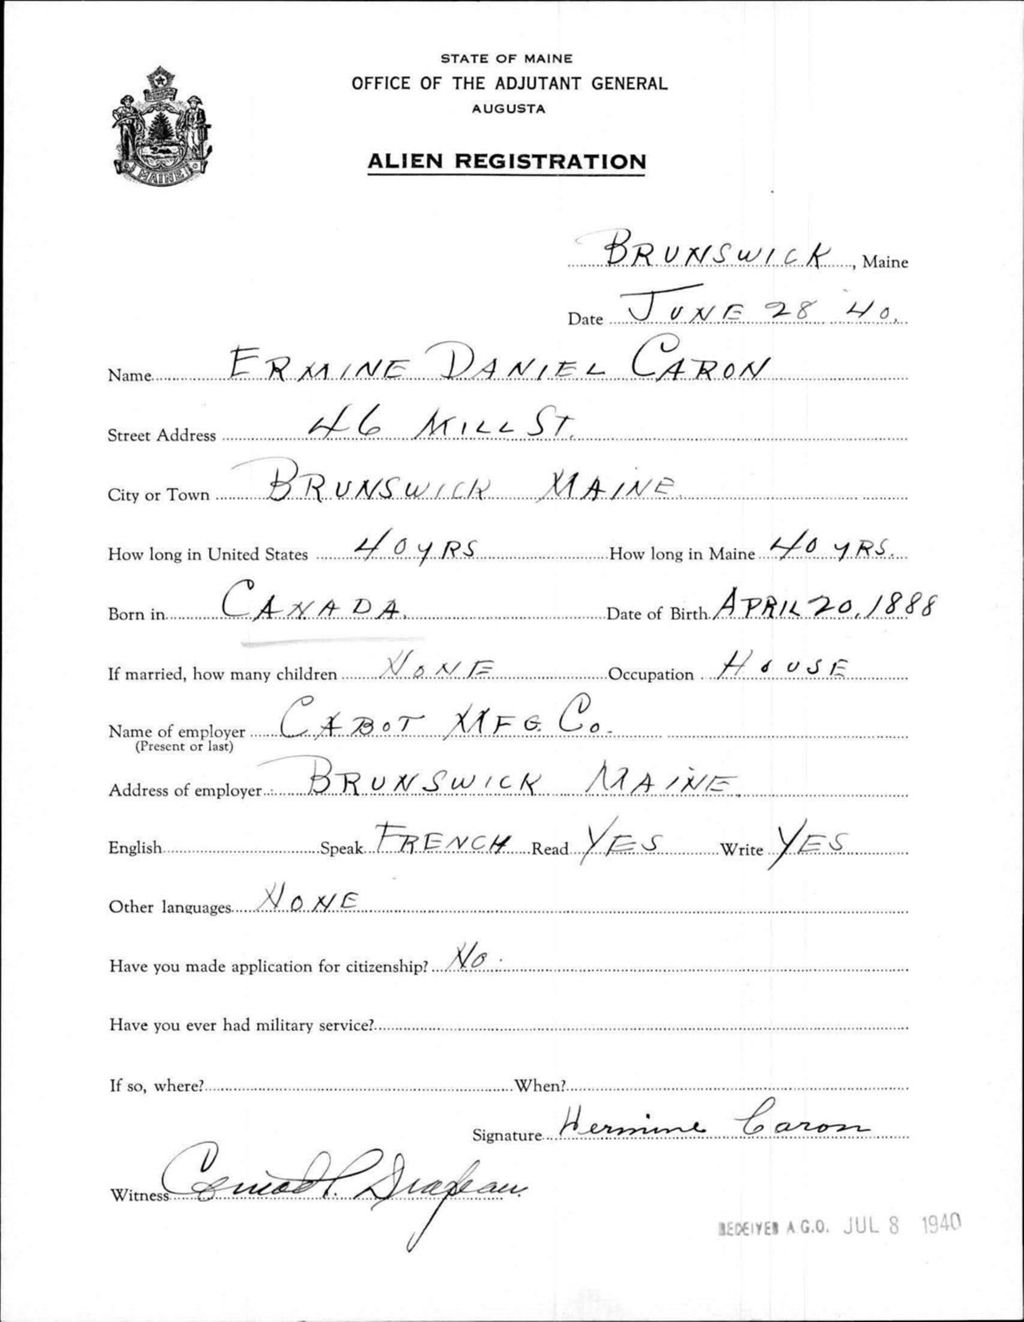 STATE OF MAINE
OFFICE OF THE ADJUTANT GENERAL
AUGUSTA
MAINE
ALIEN REGISTRATION
BRUNSWICK, Maine
Date JUNE 28 '40.
Name ERMINE DANIEL CARON
Street Address 46 MILL ST.
City or Town BRUNSWICK MAINE.
How long in United States 40 YRS How long in Maine 40 YRS.
Born in CANADA. Date of Birth APRIL 20, 1888
If married, how many children NONE Occupation HOUSE
Name of employer CABOT MFG. Co.
(Present or last)
Address of employer BRUNSWICK MAINE.
English Speak FRENCH Read YES Write YES
Other languages NONE
Have you made application for citizenship? No.
Have you ever had military service?
If so, where? When?
Signature Hermine Caron
Witness P. Drapeau
RECEIVED A.G.O. JUL 8 1940